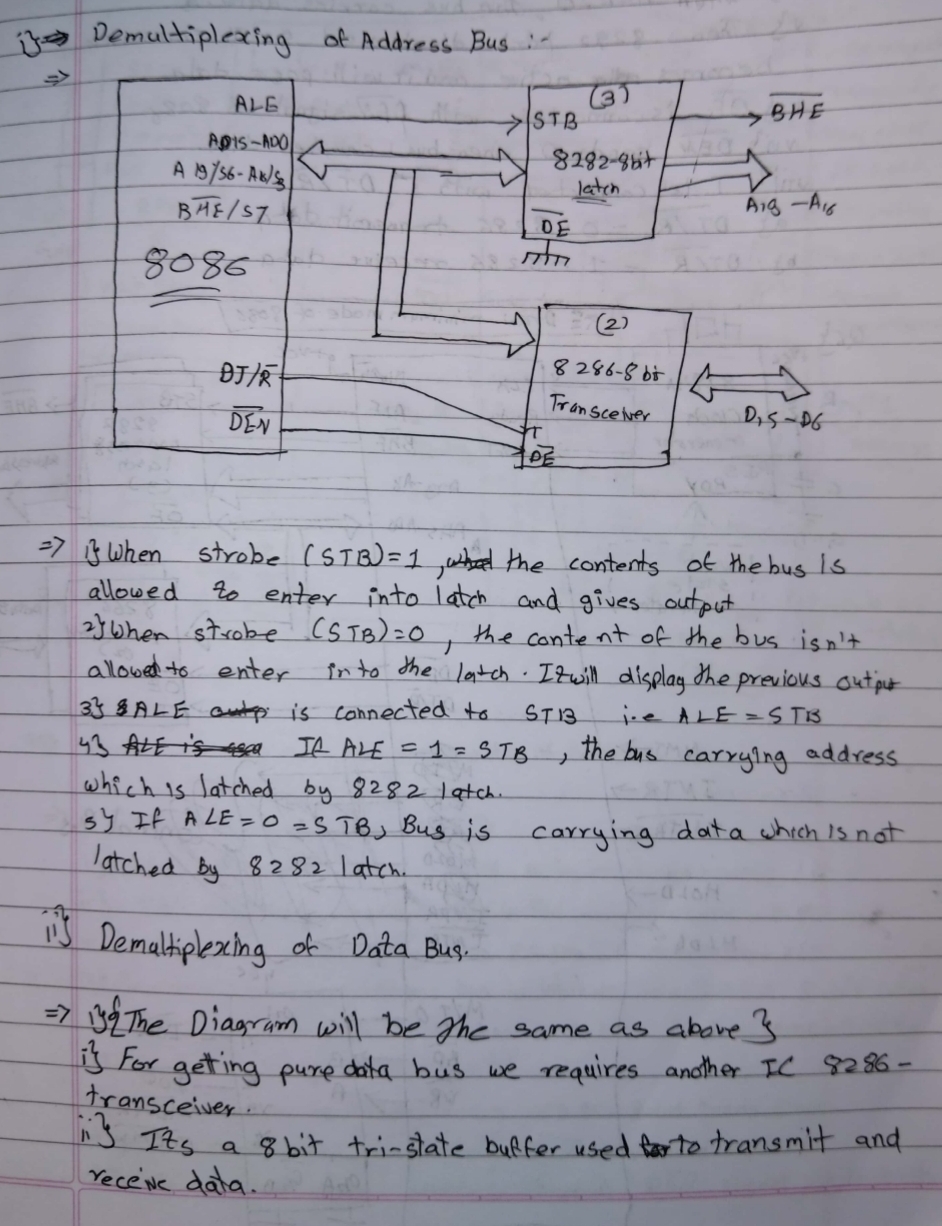 i}⇒ Demultiplexing of Address Bus :-
⇒
ALE
AD15-AD0
A19/S6-A16/S3
B̅H̅E̅/S7
8086
DT/R̅
D̅E̅N̅
(3)
STB
8282-8bit
latch
O̅E̅
B̅H̅E̅
A19 - A16
(2)
8286-8 bit
Transceiver
T
O̅E̅
D15-D0
⇒ i} When strobe (STB)=1, the contents of the bus is
allowed to enter into latch and gives output
2} When strobe (STB)=0, the content of the bus isn't
allowed to enter into the latch. It will display the previous output
3} ALE is connected to STB i.e ALE = STB
4} If ALE = 1 = STB, the bus carrying address
which is latched by 8282 latch.
5} If ALE = 0 = STB, Bus is carrying data which is not
latched by 8282 latch.
ii} Demultiplexing of Data Bus.
⇒ i} {The Diagram will be the same as above}
i} For getting pure data bus we requires another IC 8286-
transceiver.
ii} Its a 8 bit tri-state buffer used to transmit and
receive data.